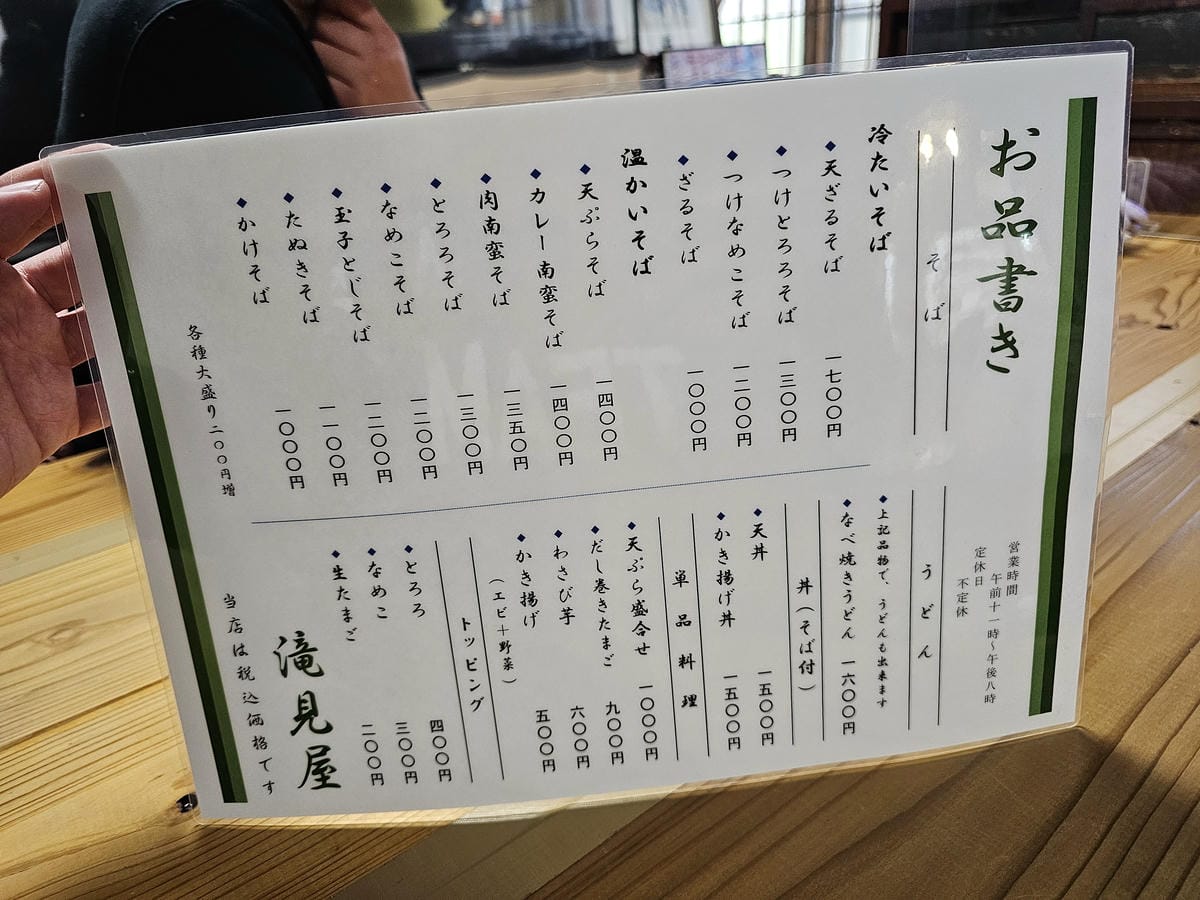 お品書き
営業時間
午前十一時～午後八時
定休日
不定休
そば
冷たいそば
◆天ざるそば 一七〇〇円
◆つけとろろそば 一三〇〇円
◆つけなめこそば 一二〇〇円
◆ざるそば 一〇〇〇円
温かいそば
◆天ぷらそば 一四〇〇円
◆カレー南蛮そば 一四〇〇円
◆肉南蛮そば 一三五〇円
◆とろろそば 一三〇〇円
◆なめこそば 一二〇〇円
◆玉子とじそば 一二〇〇円
◆たぬきそば 一一〇〇円
◆かけそば 一〇〇〇円
各種大盛り二〇〇円増
うどん
◆上記品物で、うどんも出来ます
◆なべ焼きうどん 一六〇〇円
丼（そば付）
◆天丼 一五〇〇円
◆かき揚げ丼 一五〇〇円
単品料理
◆天ぷら盛合せ 一〇〇〇円
◆だし巻きたまご 九〇〇円
◆わさび芋 六〇〇円
◆かき揚げ 五〇〇円
（エビ＋野菜）
トッピング
◆とろろ 四〇〇円
◆なめこ 三〇〇円
◆生たまご 二〇〇円
滝見屋
当店は税込価格です